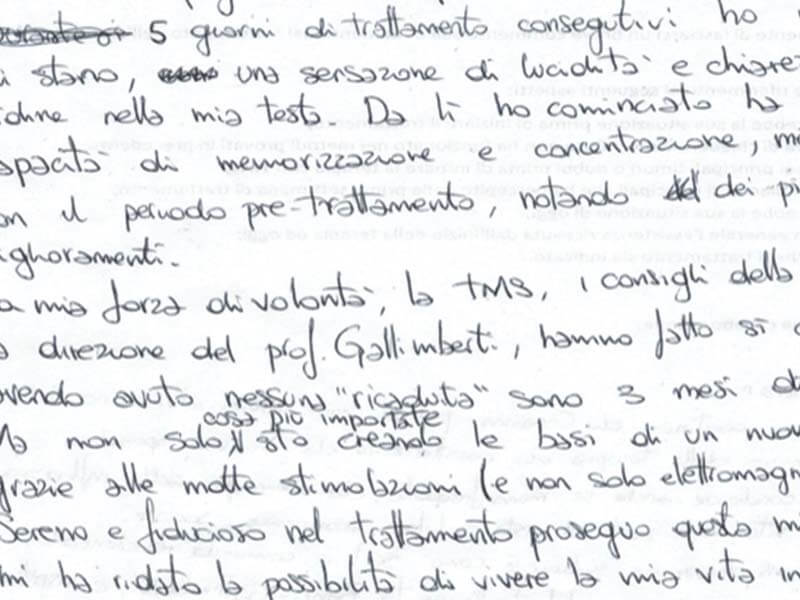 5 giorni di trattamento consegutivi ho
i strano, una sensazione di lucidità e chiarez
idine nella mia testa. Da lì ho cominciato ha
apacità di memorizzazione e concentrazione
on il periodo pre-trattamento, notando dei pi
iglioramenti.
a mia forza di volontà, la TMS, i consigli della
a direzione del prof. Gallimberti, hanno fatto sì c
vendo avuto nessuna "ricaduta" sono 3 mesi
cosa più importate
Ma non solo, sto creando le basi di un nuov
grazie alle molte stimolazioni (e non solo elettromagn
Sereno e fiducioso nel trattamento proseguo questa
mi ha ridato la possibilità di vivere la mia vita